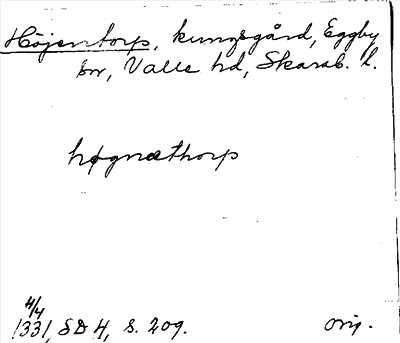 Höjentorp, kungsgård, Eggby
sn, Valle hd, Skarab. l.
høgnæthorp
4/4
1331, SD 4, s. 209. orig.